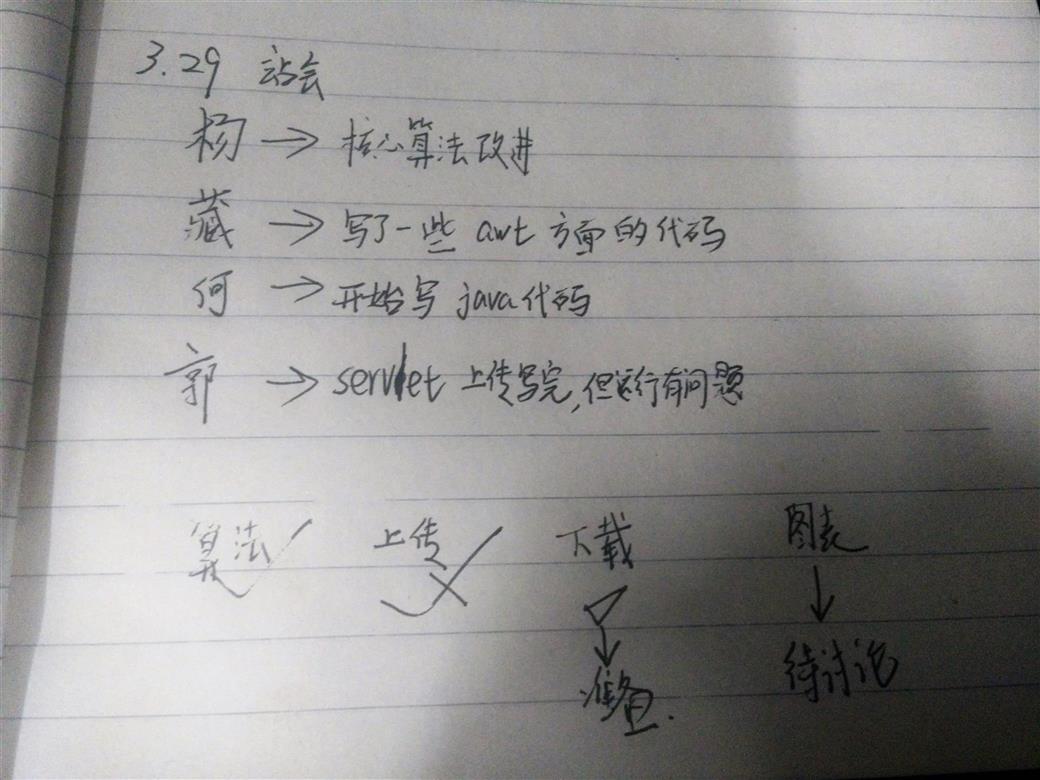 3.29 站会
杨 → 核心算法改进
藏 → 写了一些 awt 方面的代码
何 → 开始写 java代码
郭 → servlet 上传写完,但运行有问题
算法 上传 下载 图表
准备. 待讨论